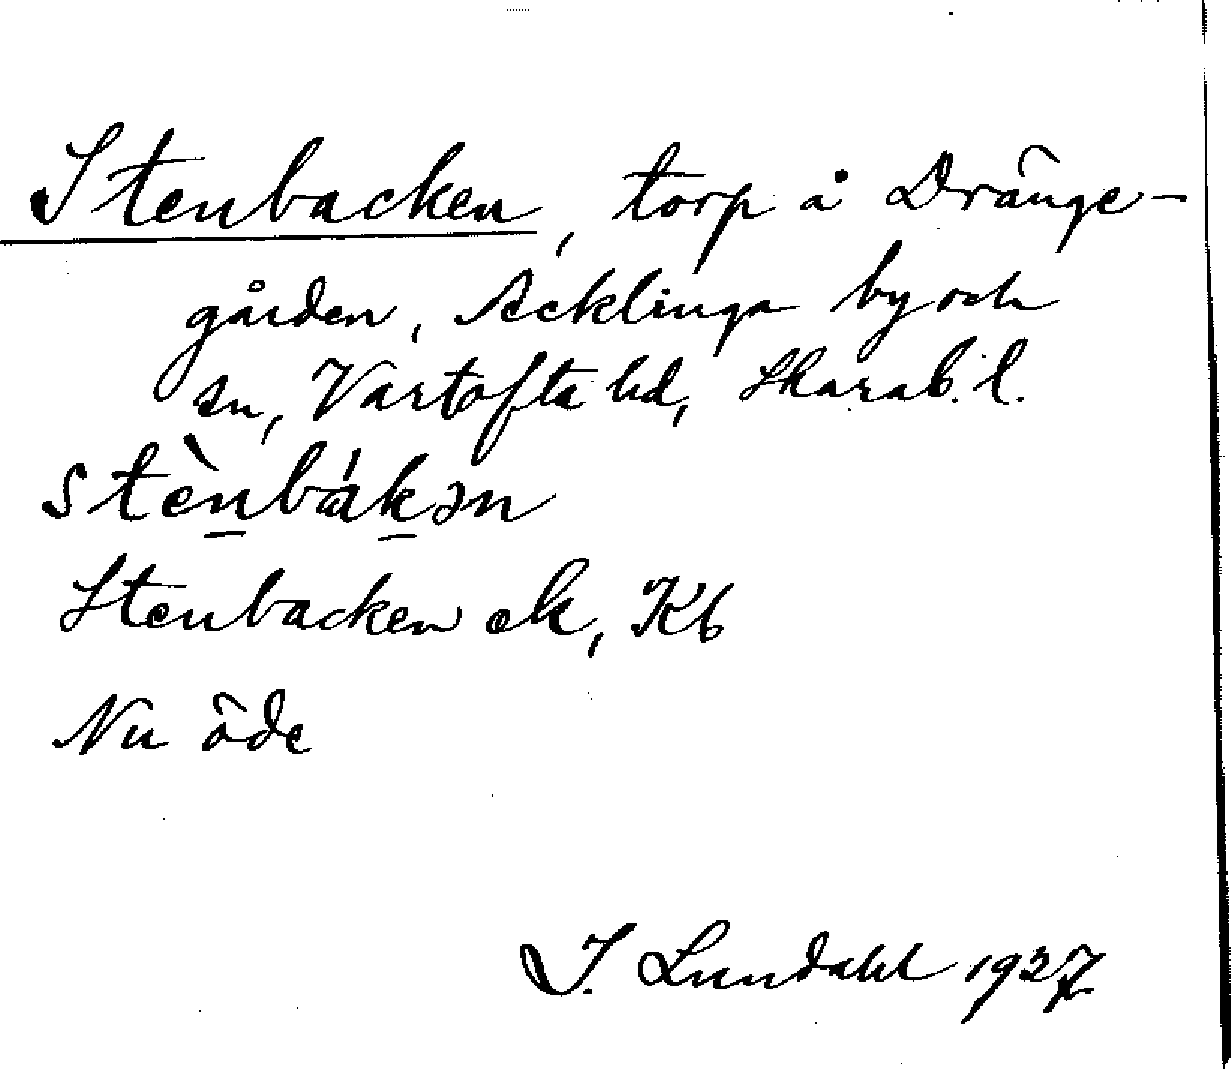 Stenbacken, torp å Dränge-
gården, Acklinga by och
sn, Vartofta hd, Skarab. l.
stèn̲bák̲ən
Stenbacken ek, Kb
Nu öde
I. Lundahl 1927